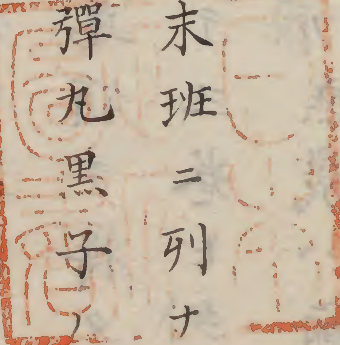 末班ニ列ナ
彈丸黒子ノ